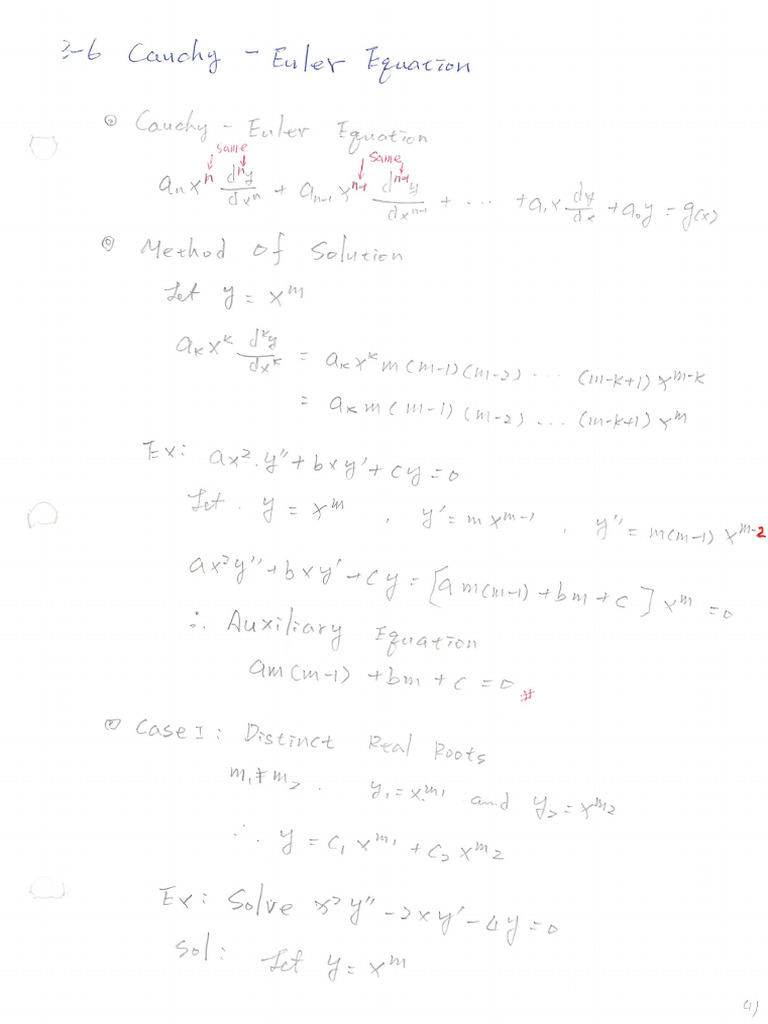 3-6 Cauchy - Euler Equation
⊙ Cauchy - Euler Equation
same same
aₙxⁿ dⁿy/dxⁿ + aₙ₋₁xⁿ⁻¹ dⁿ⁻¹y/dxⁿ⁻¹ + ... + a₁x dy/dx + a₀y = g(x)
⊙ Method of Solution
Let y = x^m
a_k x^k d^k y/dx^k = a_k x^k m(m-1)(m-2) ... (m-k+1) x^(m-k)
= a_k m(m-1)(m-2) ... (m-k+1) x^m
Ex: ax²y'' + bxy' + cy = 0
Let. y = x^m , y' = mx^(m-1) , y'' = m(m-1) x^(m-2)
ax²y'' + bxy' + cy = [am(m-1) + bm + c] x^m = 0
∴ Auxiliary Equation
am(m-1) + bm + c = 0 #
⊙ Case I: Distinct Real Roots
m₁ ≠ m₂ . y₁ = x^m₁ and y₂ = x^m₂
∴ y = c₁x^m₁ + c₂x^m₂
Ex: Solve x²y'' - 2xy' - 4y = 0
Sol: Let y = x^m
41